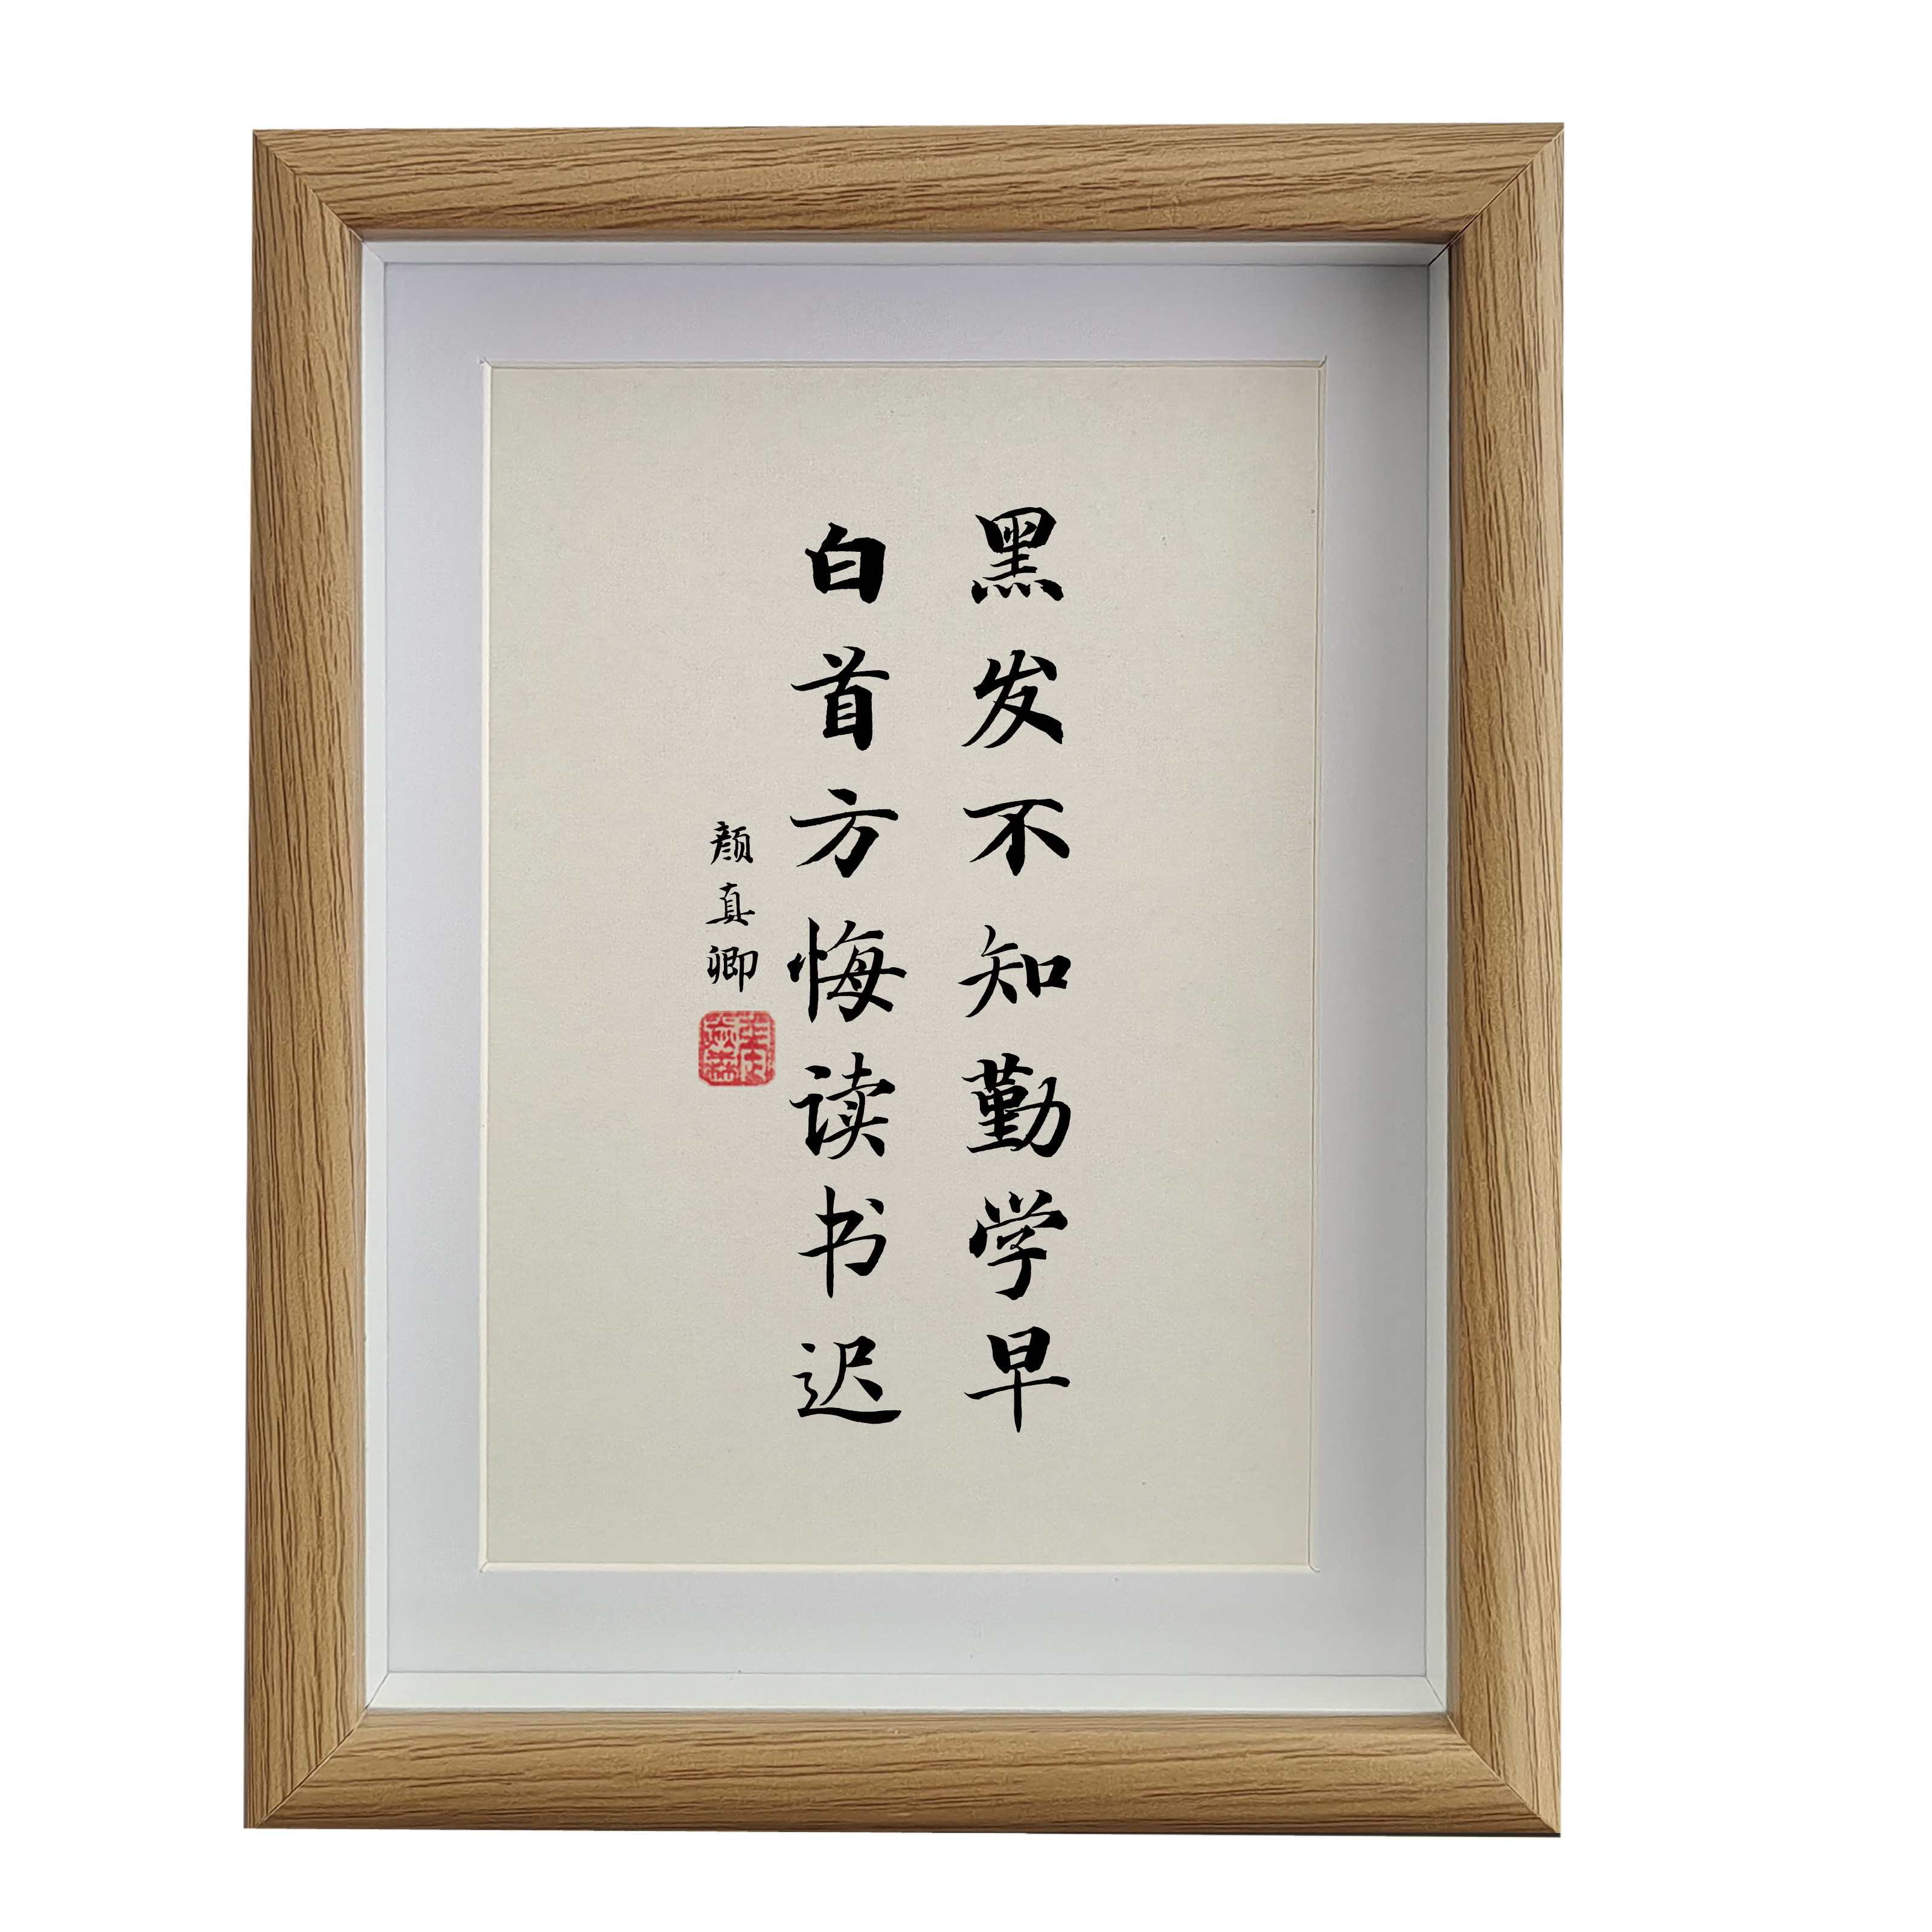 黑发不知勤学早
白首方悔读书迟
颜真卿